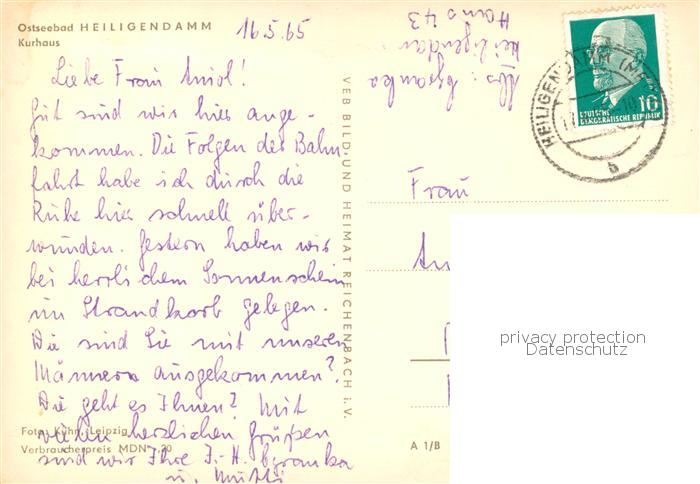 Ostseebad HEILIGENDAMM
Kurhaus
16.5.65
Liebe Frau Amol!
Gut sind wir hier ange-
kommen. Die Folgen der Bahn-
fahrt habe ich durch die
Ruhe hier schnell über-
wunden. Gestern haben wir
bei herrlichem Sonnenschein
im Strandkorb gelegen.
Wie sind Sie mit unseren
Männern ausgekommen?
Wie geht es Ihnen? Mit
vielen herzlichen Grüßen
sind wir Ihre J.-H. Czranka
u. Mutti
Foto: Kühn, Leipzig
Verbraucherpreis MDN -,20
VEB BILD UND HEIMAT REICHENBACH i. V.
Abs: Czranka
Heiligendamm
Haus 43
HEILIGENDAMM
b
10
DEUTSCHE
DEMOKRATISCHE REPUBLIK
Frau
privacy protection
Datenschutz
A 1/B